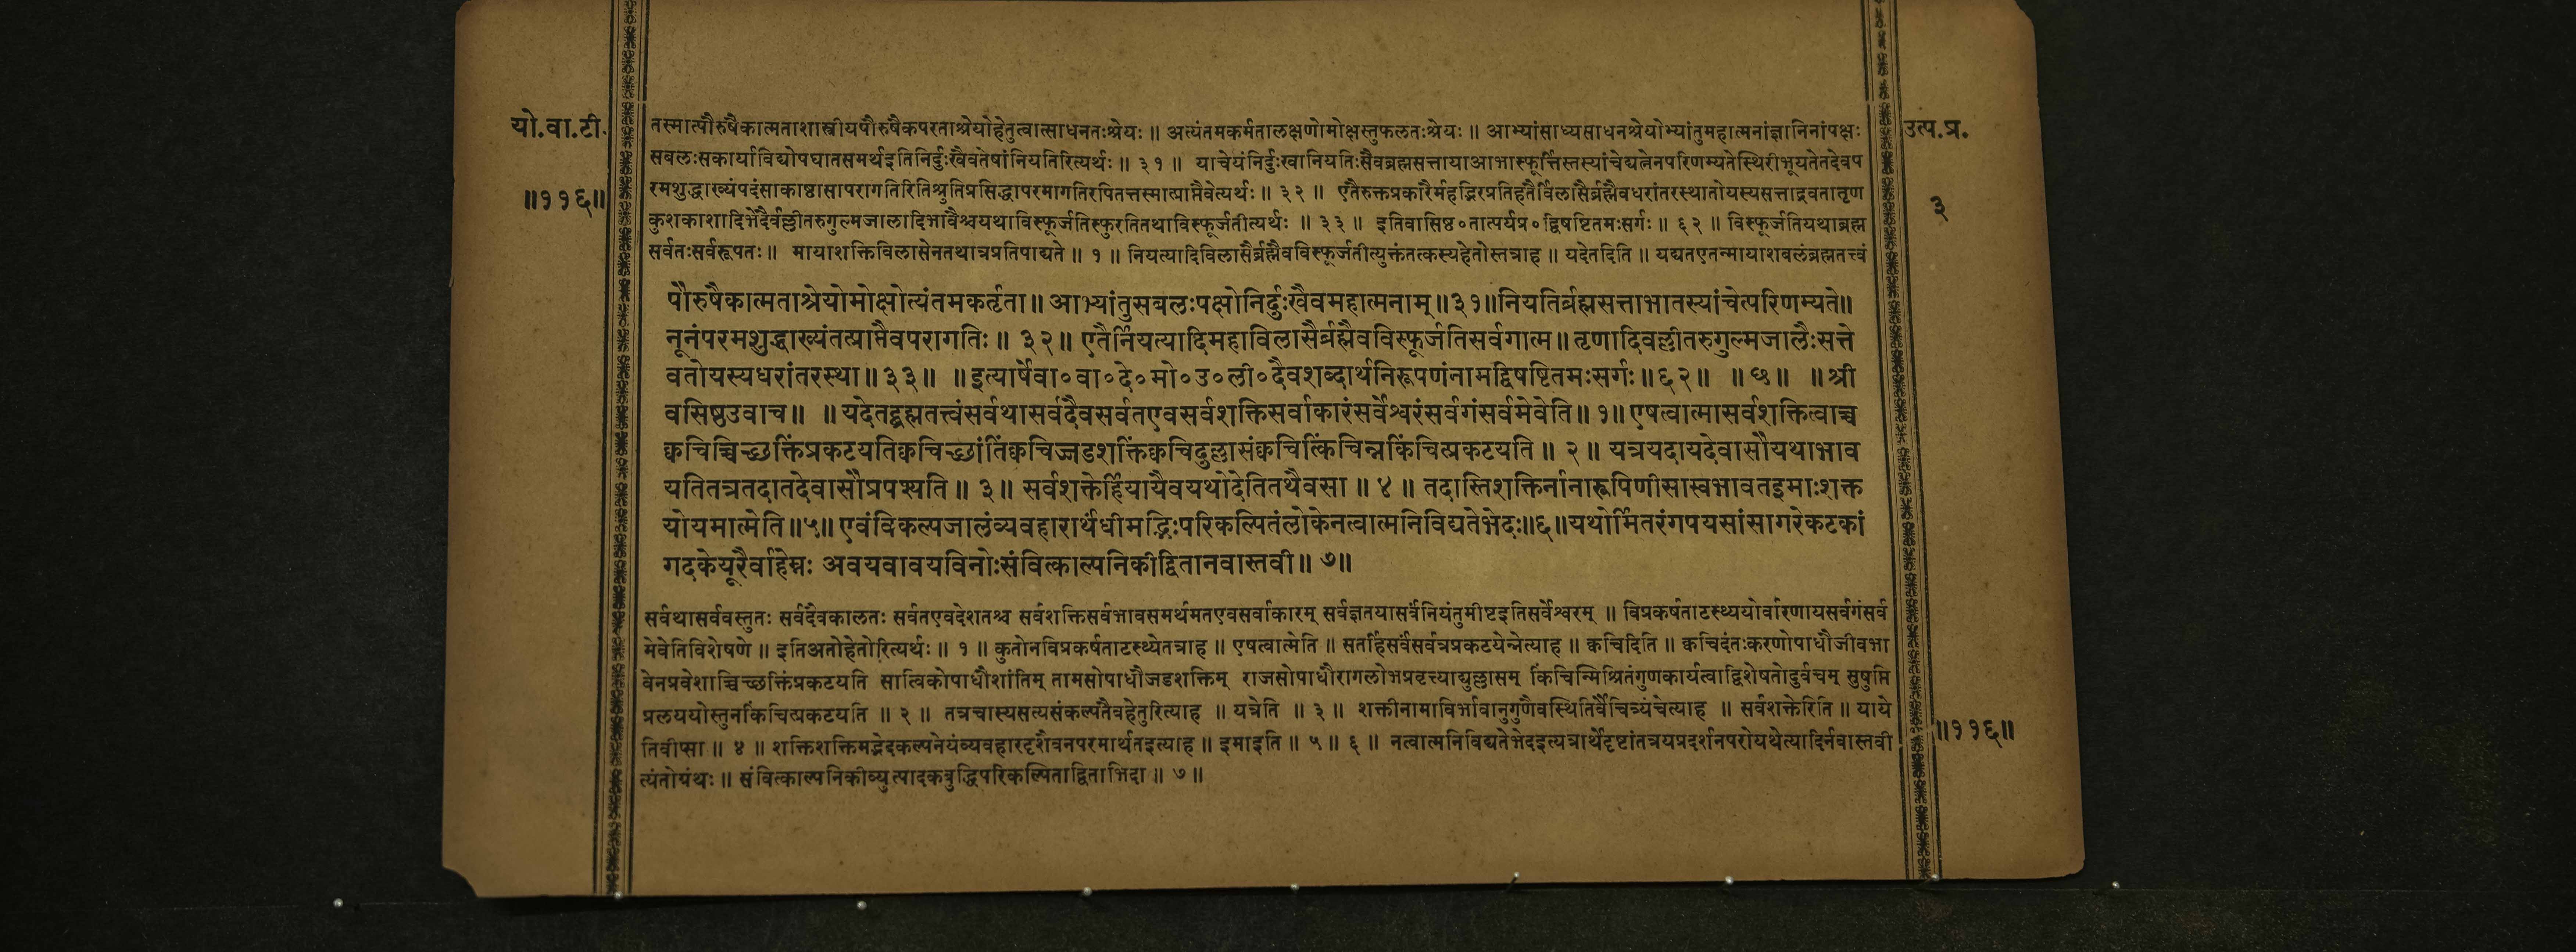 यो.वा.टी.
॥११६॥
तस्मात्पौरुषैकात्मताशास्त्रीयपौरुषैकपरताश्रेयोहेतुत्वात्साधनतःश्रेयः ॥ अत्यंतमकर्मतालक्षणोमोक्षस्तुफलतःश्रेयः ॥ आभ्यांसाध्यसाधनश्रेयोभ्यांतुमहात्मनांज्ञानिनांपक्षः
सबलःसकार्याविद्योपघातसमर्थइतिनिर्दुःखैवतेषांनियतिरित्यर्थः ॥ ३१ ॥ याचेयंनिर्दुःखानियतिःसैवब्रह्मसत्तायाआभास्फूर्त्तिस्तस्यांचेद्यत्नेनपरिणम्यतेस्थिरीभूयतेतदेवप
रमशुद्धाख्यंपदंसाकाष्ठासापरागतिरितिश्रुतिप्रसिद्धापरमागतिरपितत्तस्मात्प्राप्तैवेत्यर्थः ॥ ३२ ॥ एतैरुक्तप्रकारैर्महद्भिरप्रतिहतैर्विलासैर्ब्रह्मैवधरांतरस्थातोयस्यसत्ताद्रवतातृण
कुशकाशादिभेदैर्वल्लीतरुगुल्मजालादिभावैश्चयथाविस्फूर्जतिस्फुरतितथाविस्फूर्जतीत्यर्थः ॥ ३३ ॥ इतिवासिष्ठ०तात्पर्यप्र०द्विषष्टितमःसर्गः ॥ ६२ ॥ विस्फूर्जतियथाब्रह्म
सर्वतःसर्वरूपतः ॥ मायाशक्तिविलासेनतथात्रप्रतिपाद्यते ॥ १ ॥ नियत्यादिविलासैर्ब्रह्मैवविस्फूर्जतीत्युक्तंतत्कस्यहेतोस्तत्राह ॥ यदेतदिति ॥ यद्यतएतन्मायाशबलंब्रह्मतत्त्वं
पौरुषैकात्मताश्रेयोमोक्षोत्यंतमकर्तृता ॥ आभ्यांतुसबलःपक्षोनिर्दुःखैवमहात्मनाम् ॥३१॥ नियतिर्ब्रह्मसत्ताभातस्यांचेत्परिणम्यते॥
नूनंपरमशुद्धाख्यंतत्प्राप्तैवपरागतिः ॥ ३२ ॥ एतैर्नियत्यादिमहाविलासैर्ब्रह्मैवविस्फूर्जतिसर्वगात्म ॥ तृणादिवल्लीतरुगुल्मजालैःसत्ते
वतोयस्यधरांतरस्था ॥ ३३ ॥ ॥ इत्यार्षेवा०वा०दे०मो०उ०ली०दैवशब्दार्थनिरूपणंनामद्विषष्टितमःसर्गः ॥ ६२ ॥ ॥ छ ॥ ॥ श्री
वसिष्ठउवाच ॥ ॥ यदेतद्ब्रह्मतत्त्वंसर्वथासर्वदैवसर्वतएवसर्वशक्तिसर्वाकारंसर्वेश्वरंसर्वगंसर्वमेवेति ॥ १ ॥ एषत्वात्मासर्वशक्तित्वाच्च
क्वचिच्चिच्छक्तिंप्रकटयतिक्वचिच्छांतिंक्वचिज्जडशक्तिंक्वचिदुल्लासंक्वचित्किंचिन्नकिंचित्प्रकटयति ॥ २ ॥ यत्रयदायदेवासौयथाभाव
यतितत्रतदातदेवासौप्रपश्यति ॥ ३ ॥ सर्वशक्तेर्हियायैवयथोदेतितथैवसा ॥ ४ ॥ तदास्तिशक्तिर्नानारूपिणीसास्वभावतइमाःशक्त
योयमात्मेति ॥५॥ एवंविकल्पजालंव्यवहारार्थंधीमद्भिःपरिकल्पितंलोकेनत्वात्मनिविद्यतेभेदः॥६॥यथोर्मितरंगपयसांसागरेकटकां
गदकेयूरैर्वाहेम्नः अवयवावयविनोःसंवित्काल्पनिकीद्वितानवास्तवी ॥ ७॥
सर्वथासर्ववस्तुतः सर्वदैवकालतः सर्वतएवदेशतश्च सर्वशक्तिसर्वभावसमर्थमतएवसर्वाकारम् सर्वज्ञतयासर्वनियंतुमीष्टइतिसर्वेश्वरम् ॥ विप्रकर्षताटस्थ्ययोर्वारणायसर्वगंसर्व
मेवेतिविशेषणे ॥ इतिअतोहेतोरित्यर्थः ॥ १ ॥ कुतोनविप्रकर्षताटस्थ्येतत्राह ॥ एषत्वात्मेति ॥ सतर्हिसर्वंसर्वत्रप्रकटयेन्नेत्याह ॥ क्वचिदिति ॥ क्वचिदंतःकरणोपाधौजीवभा
वेनप्रवेशाच्चिच्छक्तिंप्रकटयति सात्विकोपाधौशांतिम् तामसोपाधौजडशक्तिम् राजसोपाधौरागलोभप्रवृत्त्याद्युल्लासम् किंचिन्मिश्रितंगुणकार्यत्वाद्विशेषतोदुर्वचम् सुषुप्ति
प्रलययोस्तुनकिंचित्प्रकटयति ॥ २ ॥ तत्रचास्यसत्यसंकल्पतैवहेतुरित्याह ॥ यत्रेति ॥ ३ ॥ शक्तीनामाविर्भावानुगुणैवस्थितिर्वैचित्र्यंचेत्याह ॥ सर्वशक्तेरिति ॥ यायै
तिवीप्सा ॥ ४ ॥ शक्तिशक्तिमद्भेदकल्पनेयंव्यवहारदृशैवनपरमार्थतइत्याह ॥ इमाइति ॥ ५ ॥ ६ ॥ नत्वात्मनिविद्यतेभेदइत्यत्रार्थेदृष्टांतत्रयप्रदर्शनपरोयथेत्यादिर्नवास्तवी
त्यंतोग्रंथः ॥ संवित्काल्पनिकीव्युत्पादकबुद्धिपरिकल्पिताद्विताभिदा ॥ ७ ॥
उत्प.प्र.
३
॥११६॥